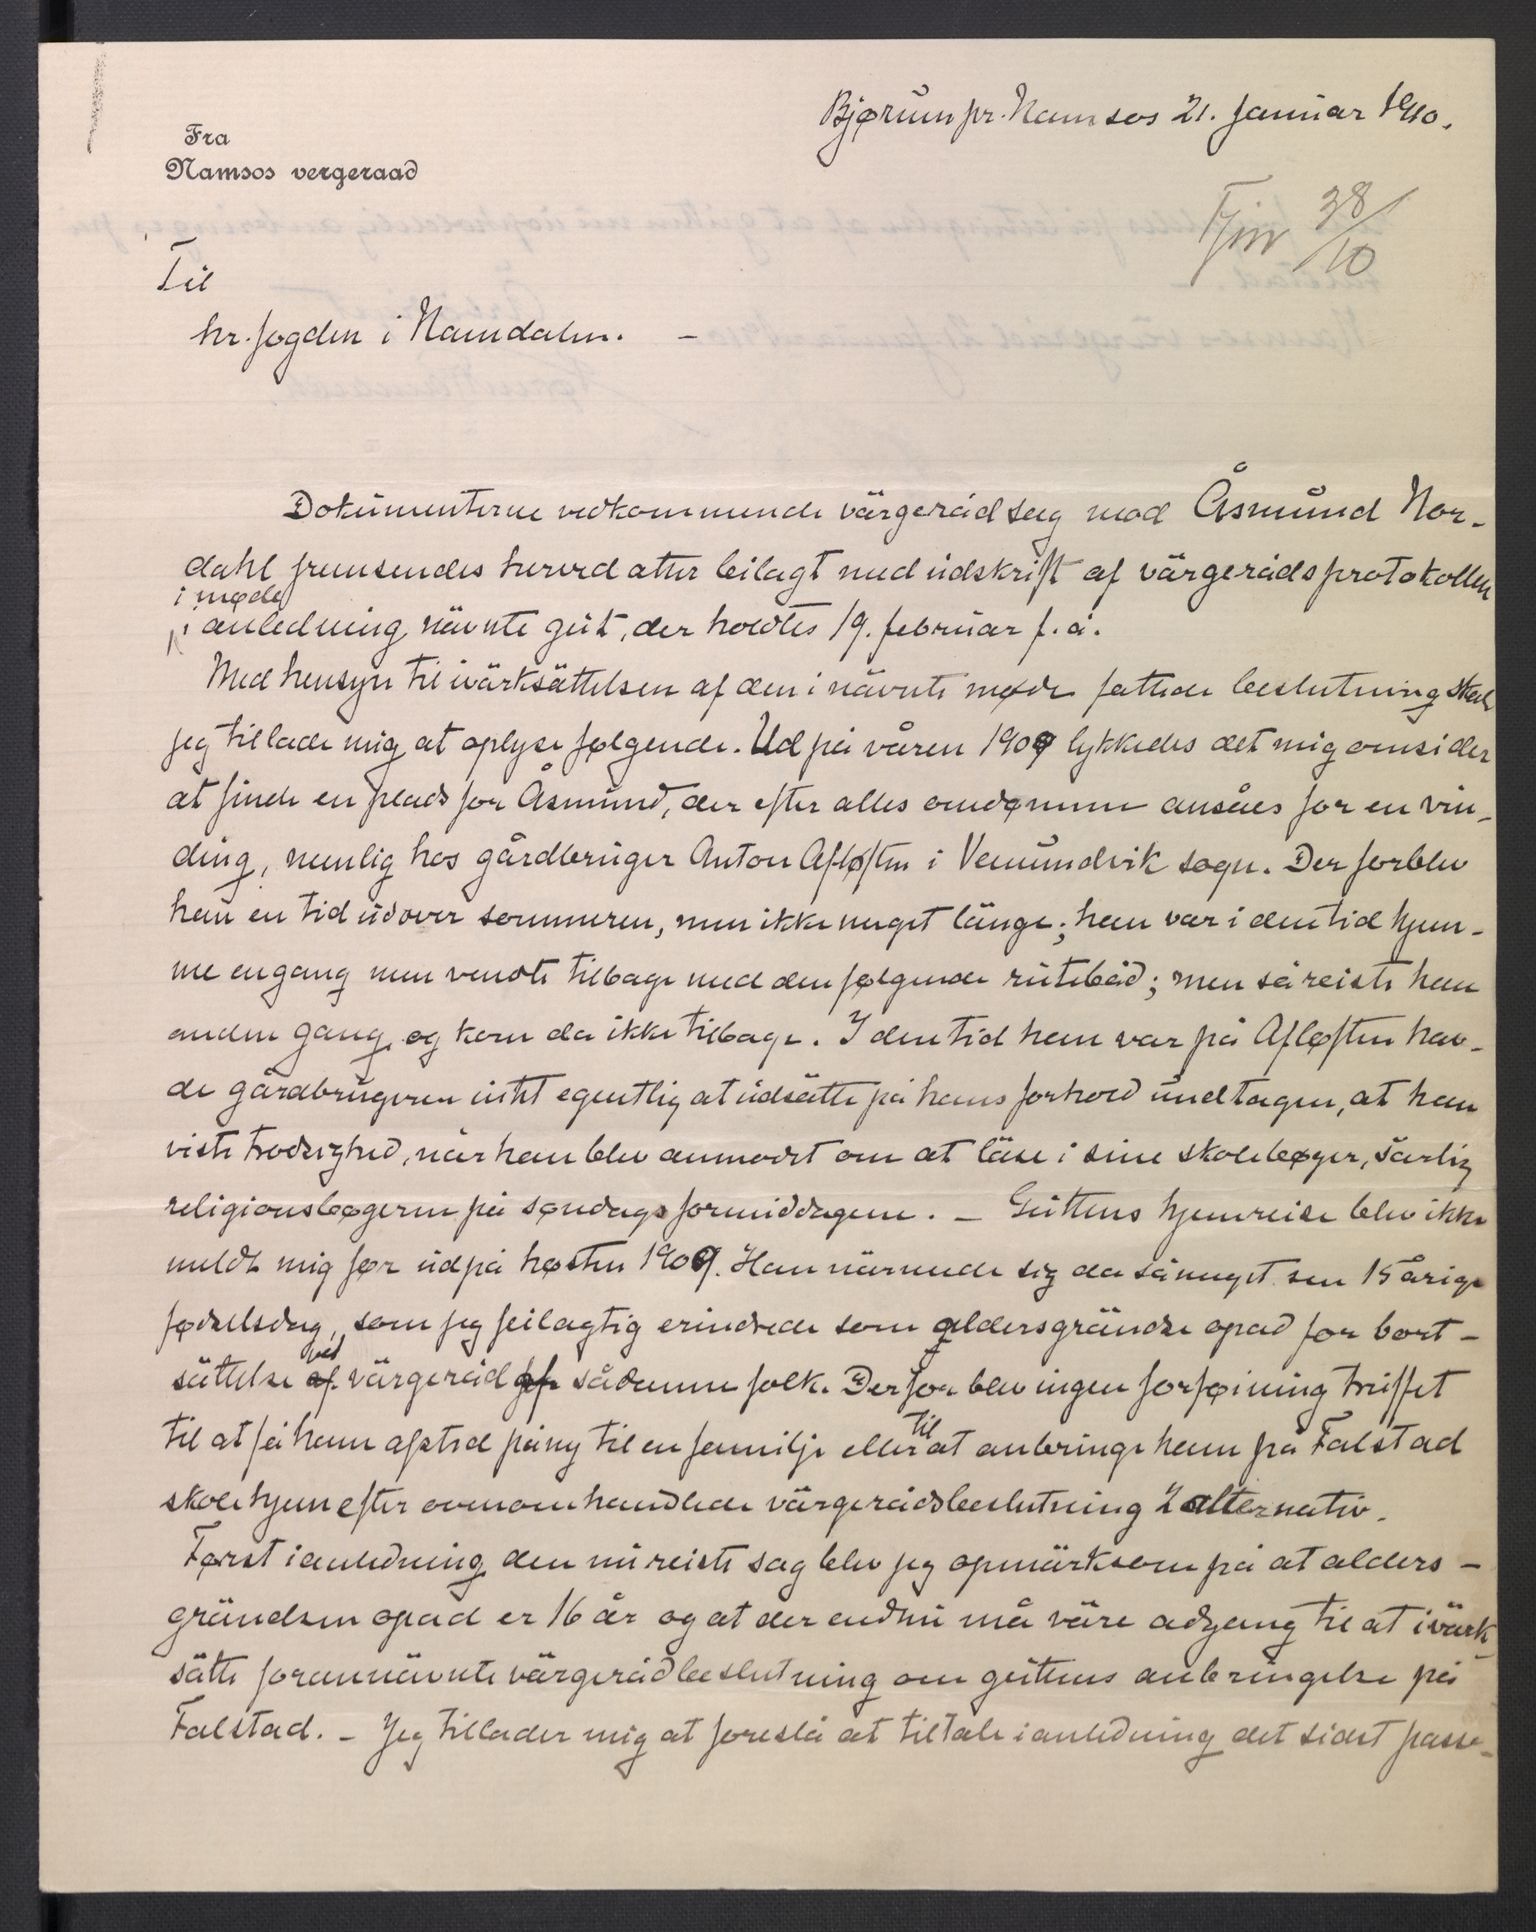 Bjørum pr. Namsos 21. januar 1910.
Fra
Namsos vergeraad
38/10
Til
hr. fogden i Namdalen. –
Dokumenterne vedkommende värgerådsag mod Åsmund Nor-
dahl fremsendes herved atter bilagt med udskrift af värgerådsprotokollen
i møde
i anledning nävnte gut, der holdtes 19. februar f.å.
Med hensyn til ivärksättelsen af den i nävnte møde fattede beslutning skal
jeg tillade mig at oplyse følgende. Ud på våren 1909 lykkedes det mig omsider
at finde en plads for Åsmund, der efter alles omdømme ansåes for en vin-
ding, nemlig hos gårdbruger Anton Afløften i Vemundvik sogn. Der forblev
han en tid udover sommeren, men ikke meget länge; han var i den tid hjem-
me en gang men vendte tilbage med den følgende rutebåd; men så reiste han
anden gang og kom da ikke tilbage. I den tid han var på Afløften hav-
de gårdbrugeren intet egentlig at udsätte på hans forhold undtagen, at han
viste trodsighed, når han blev anmodet om at läse i sine skolebøger, särlig
religionsbøgerne på søndags formiddagene. – Guttens hjemreise blev ikke
meldt mig før ud på høsten 1909. Han närmede sig da så meget sin 15 årige
fødselsdag, som jeg feilagtig erindrede som aldersgrändse opad for bort-
sättelse af ved värgeråd af sådanne folk. Derfor blev ingen forføining truffet
til at få ham afsted påny til en familje eller til at anbringe ham på Falstad
skolehjem efter ovenomhandlede värgerådsbeslutning 2 alternativ.
Først i anledning den nu reiste sag blev jeg opmärksom på at alders-
grändsen opad er 16 år og at der endnu må väre adgang til at ivärk-
sätte forannävnte värgerådbeslutning om guttens anbringelse på
Falstad. – Jeg tillader mig at foreslå at tiltale i anledning det sidst passe-